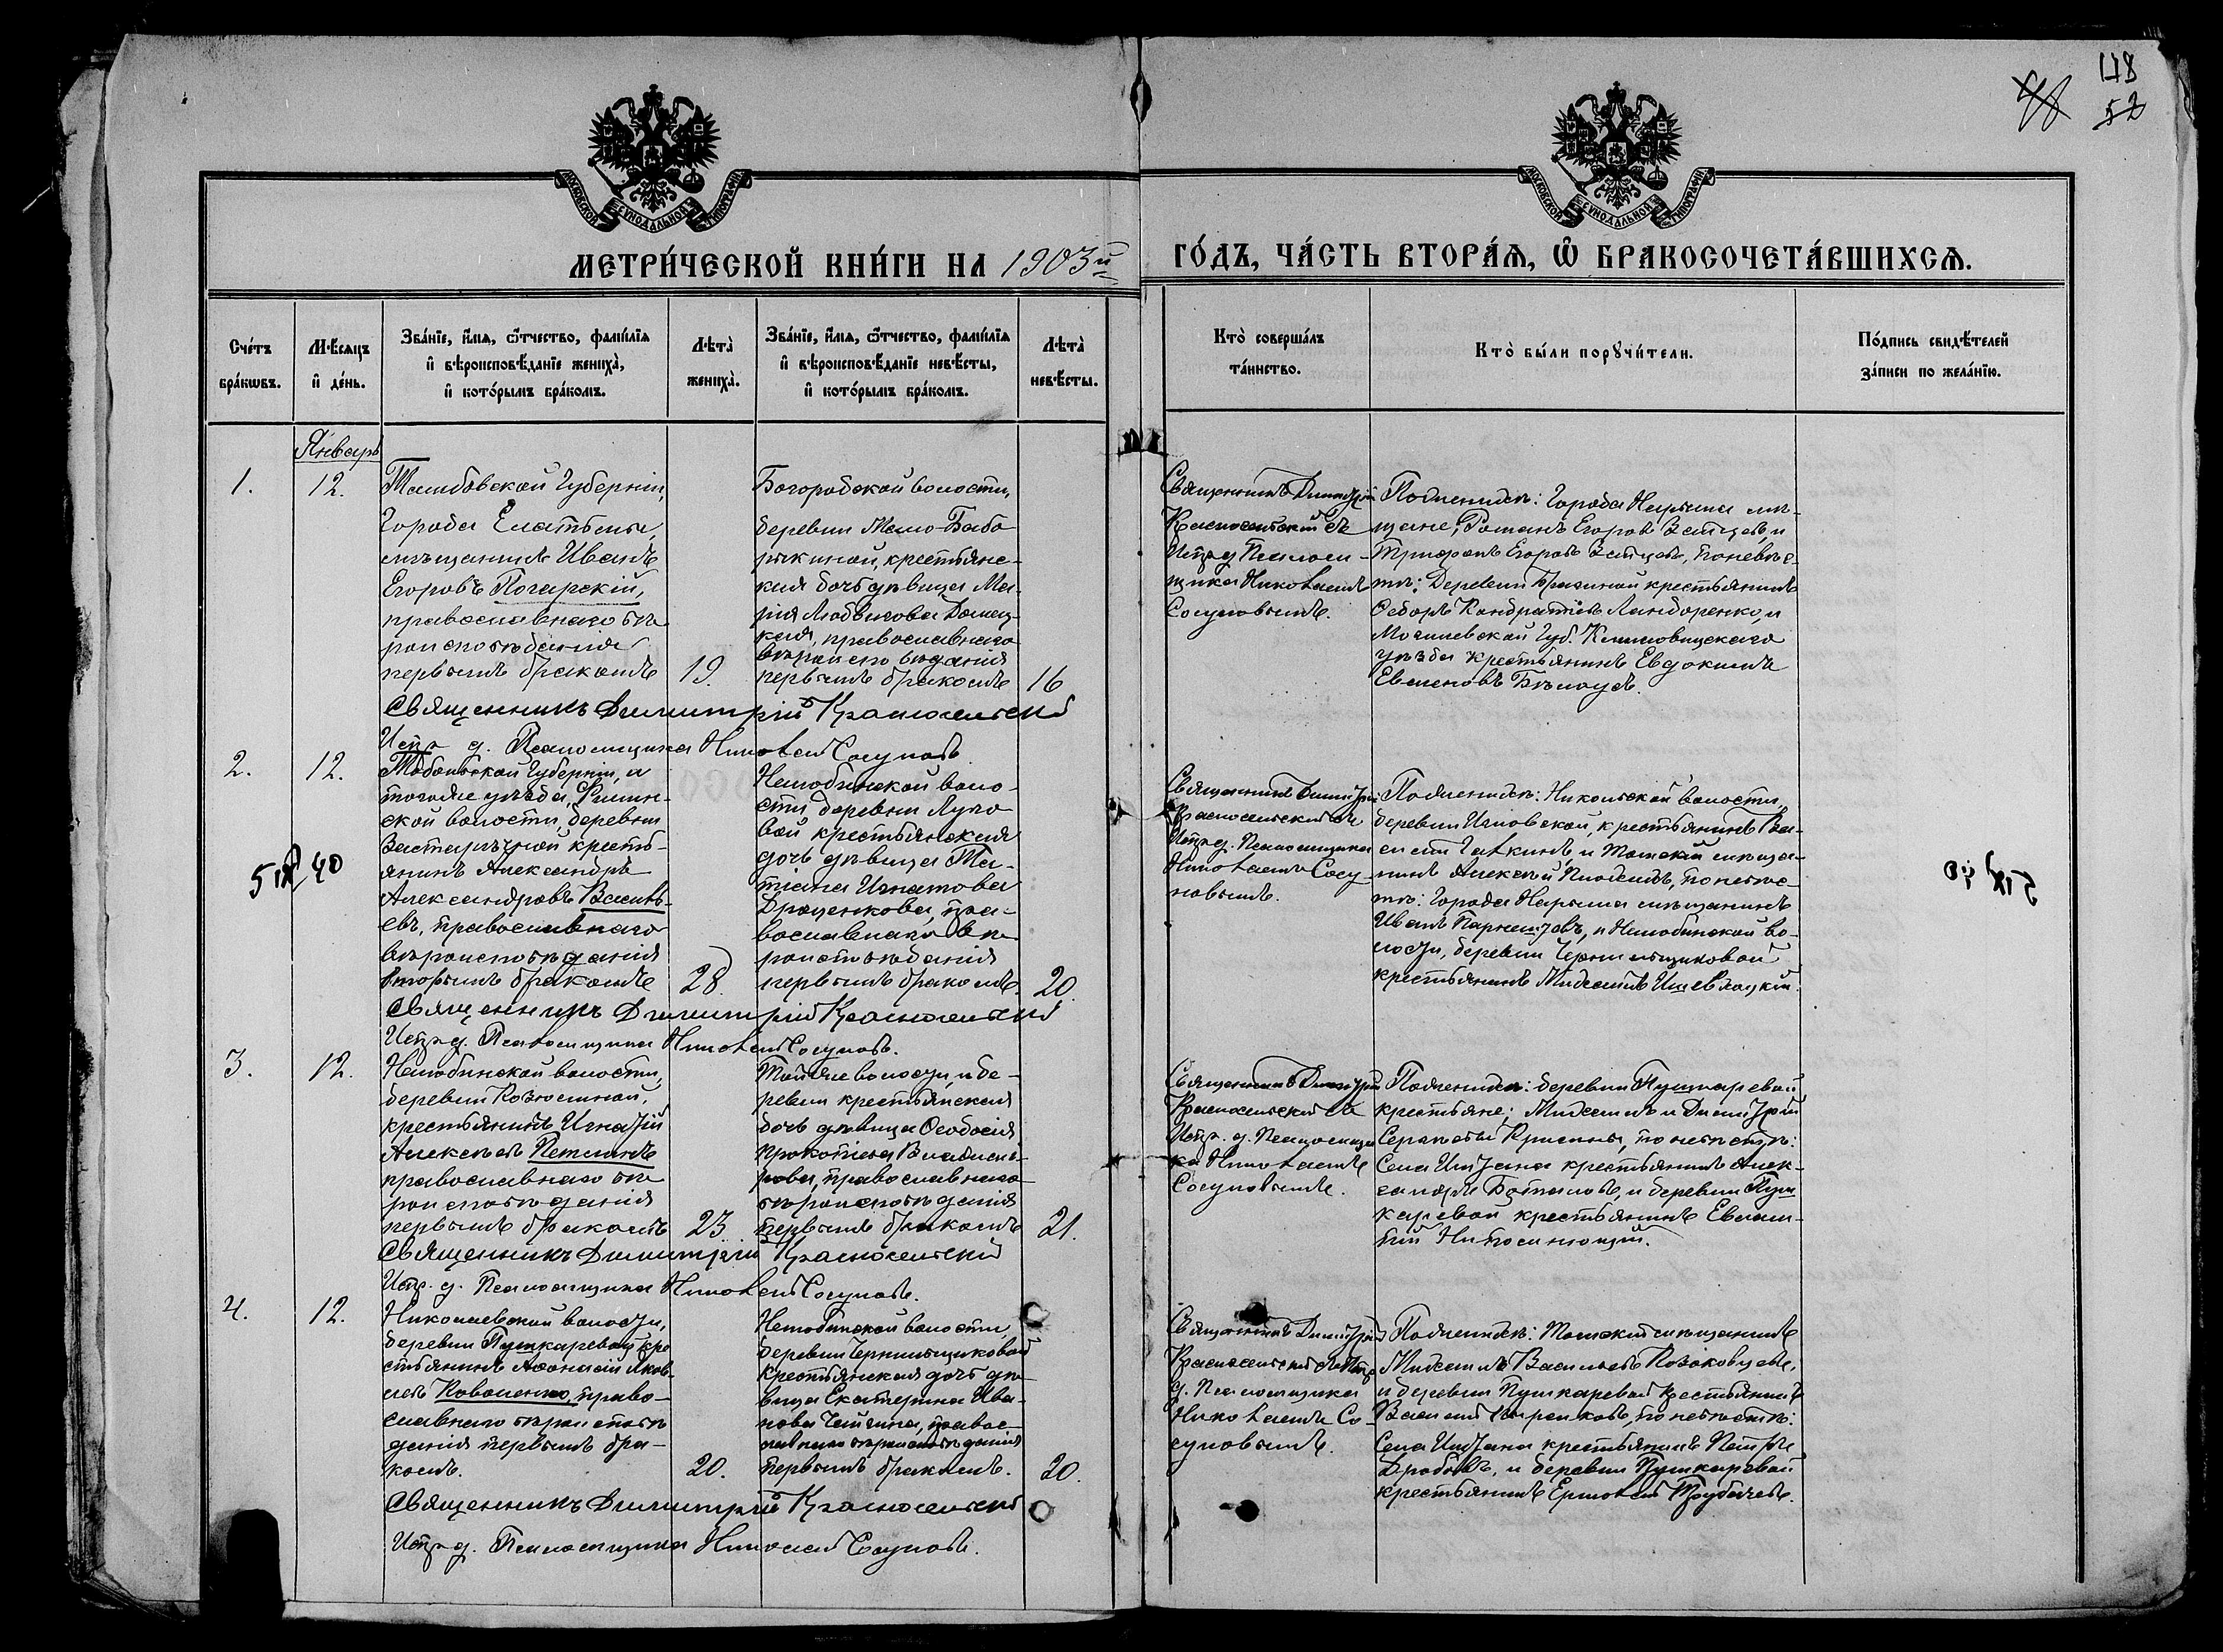 118
52
МОСКОВСКОЙ СѴНОДАЛЬНОЙ ТИПОГРАФІИ
МОСКОВСКОЙ СѴНОДАЛЬНОЙ ТИПОГРАФІИ
МЕТРИ́ЧЕСКОЙ КНИ́ГИ НА 1903й
ГО́ДЪ, ЧА́СТЬ ВТОРА́Ѧ, Ѿ БРАКОСОЧЕТА́ВШИХСѦ.
Сче́тъ
бра́кѡвъ.
Мѣ́сяцъ
и де́нь.
Зва́нїе, и́мѧ, ѻ́тчество, фамі́лїѧ
и вѣроисповѣ́данїе жениха̀,
и кото́рымъ бра́комъ.
Лѣта̀
жениха̀.
Зва́нїе, и́мѧ, ѻ́тчество, фамі́лїѧ
и вѣроисповѣ́данїе невѣ́сты,
и кото́рымъ бра́комъ.
Лѣта̀
невѣ́сты.
Кто̀ соверша́лъ
та́инство.
Кто̀ бы́ли порꙋчи́тели.
По́дпись свидѣ́телей
за́писи по жела́нїю.
Январь
1.
12.
Тамбовской Губерніи,
Города Елатьмы,
мѣщанинъ Иванъ
Егоровъ Погарскій,
православнаго вѣ-
роисповѣданія
первымъ бракомъ
19
Богородской волости,
деревни Мало-Баба
рыкиной, крестьянс-
кая дочь дѣвица Ма-
рія Людвигова Домац-
кая, православнаго
вѣроисповѣданія
первымъ бракомъ
16
Священникъ Димитрій
Красносельскій съ
Испр. д. Псаломщ-
щика Николаемъ
Сосуновымъ.
По женихѣ: Города Нарыма мѣ-
щане; Романъ Егоровъ Зайцевъ, и
Трифонъ Егоровъ Зайцевъ, по невѣс-
тѣ: Деревни Брагиной крестьянинъ
Ѳедоръ Кандратьевъ Ландоренко, и
Могилевской Губ. Климовицскаго
уѣзда крестьянинъ Евдокимъ
Евменовъ Бѣлоусъ.
Священникъ Димитрій Красносельскій
Испр. д. Псаломщика Николай Сосуновъ
2.
12.
Тобольской Губерніи, и
того же уѣзда,
ской волости, деревни
крестьянинъ Александръ
Александровъ Василь-
евъ, православнаго
вѣроисповѣданія
вторымъ бракомъ
28.
Нелюбинской воло-
сти деревни Луго
вой крестьянская
дочь дѣвица Та-
тіана Игнатова
Драценкова, пра-
вославнаго вѣ-
роисповѣданія
первымъ бракомъ.
20.
Священникъ Димитрій
Красносельскій съ
Испр. д. Псаломщика
Николаемъ Сосу-
новымъ.
По женихѣ: Никольской волости,
деревни крестьянинъ Ва-
силій и Томскій мѣща-
нинъ Алексѣй по невѣс-
тѣ: Города Нарыма мѣщанинъ
Иванъ и Нелюбинской во-
лости, деревни Чернильщиковой
крестьянинъ Михаилъ
Священникъ Димитрій Красносельскій
Испр. д. Псаломщика Николай Сосуновъ.
3.
12.
Нелюбинской волости,
деревни Козюлиной,
крестьянинъ Игнатій
Алексѣевъ Петлинъ
православнаго вѣ-
роисповѣданія
первымъ бракомъ
23.
Той же волости, и де-
ревни крестьянская
дочь дѣвица Ѳеодосія
Прокопіева Владими-
рова, православнаго
вѣроисповѣданія
первымъ бракомъ
21.
Священникъ Димитрій
Красносельскій съ
Испр. д. Псаломщи-
ка Николаемъ
Сосуновымъ.
По женихѣ: деревни Пушкаревой
крестьяне; Михаилъ и Димитрій
по невѣстѣ:
Села Иштана крестьянинъ Алек-
сандръ и деревни Пуш
каревой крестьянинъ Евлам-
пій
Священникъ Димитрій Красносельскій
Испр. д. Псаломщика Николай Сосуновъ.
4.
12.
Николаевской волости,
деревни Пушкаревой кре
стьянинъ Аѳанасій Яков-
левъ Коваленко, право-
славнаго вѣроисповѣ
данія первымъ бра-
комъ.
20.
Нелюбинской волости,
деревни Чернильщиковой
крестьянская дочь дѣ-
вица Екатерина Ива-
нова правос-
лавнаго вѣроисповѣданія
первымъ бракомъ.
20.
Священникъ Димитрій
Красносельскій съ Испр
д. Псаломщика
Николаемъ Со-
суновымъ.
По женихѣ: Томскій мѣщанинъ
Михаилъ Васильевъ
и деревни Пушкаревой крестьянинъ
Василій по невѣстѣ:
Села Иштана крестьянинъ Петръ
и деревни Пушкаревой
крестьянинъ Ермолай Трубачевъ.
Священникъ Димитрій Красносельскій
Испр. д. Псаломщика Николай Сосуновъ.